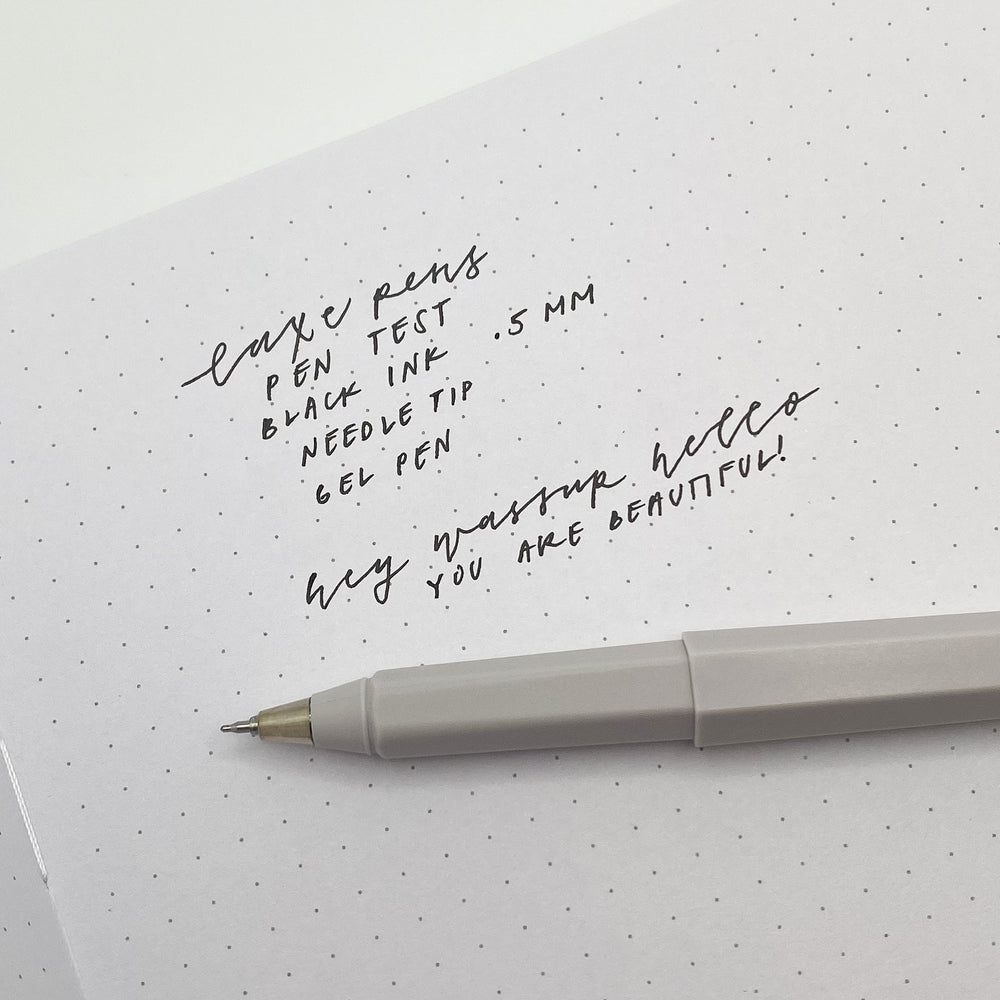 luxe pens
PEN TEST
BLACK INK .5 MM
NEEDLE TIP
GEL PEN
hey wassup hello
YOU ARE BEAUTIFUL!